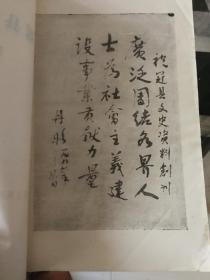 祝冠县文史资料创刊
广泛团结各界人
士为社会主义建
设事业贡献力量